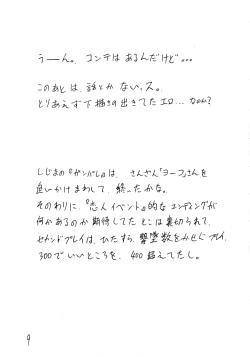 うーん。コンテは あるんだけど...
このあとは、話とか ないッス。
とりあえず下描きの出きてたエロ… なのか?
しじまの『ガンバレ』は、さんざん『ヨーコ』さんを
追いかけまわして、終ったかな。
そのわりに、『恋人イベント』的な エンディングが
何かあるのか期待してた とこは裏切られて、
セカンドプレイは、ひたすら、撃墜数を プレイ、
300でいいところを、400超えてたし。
9